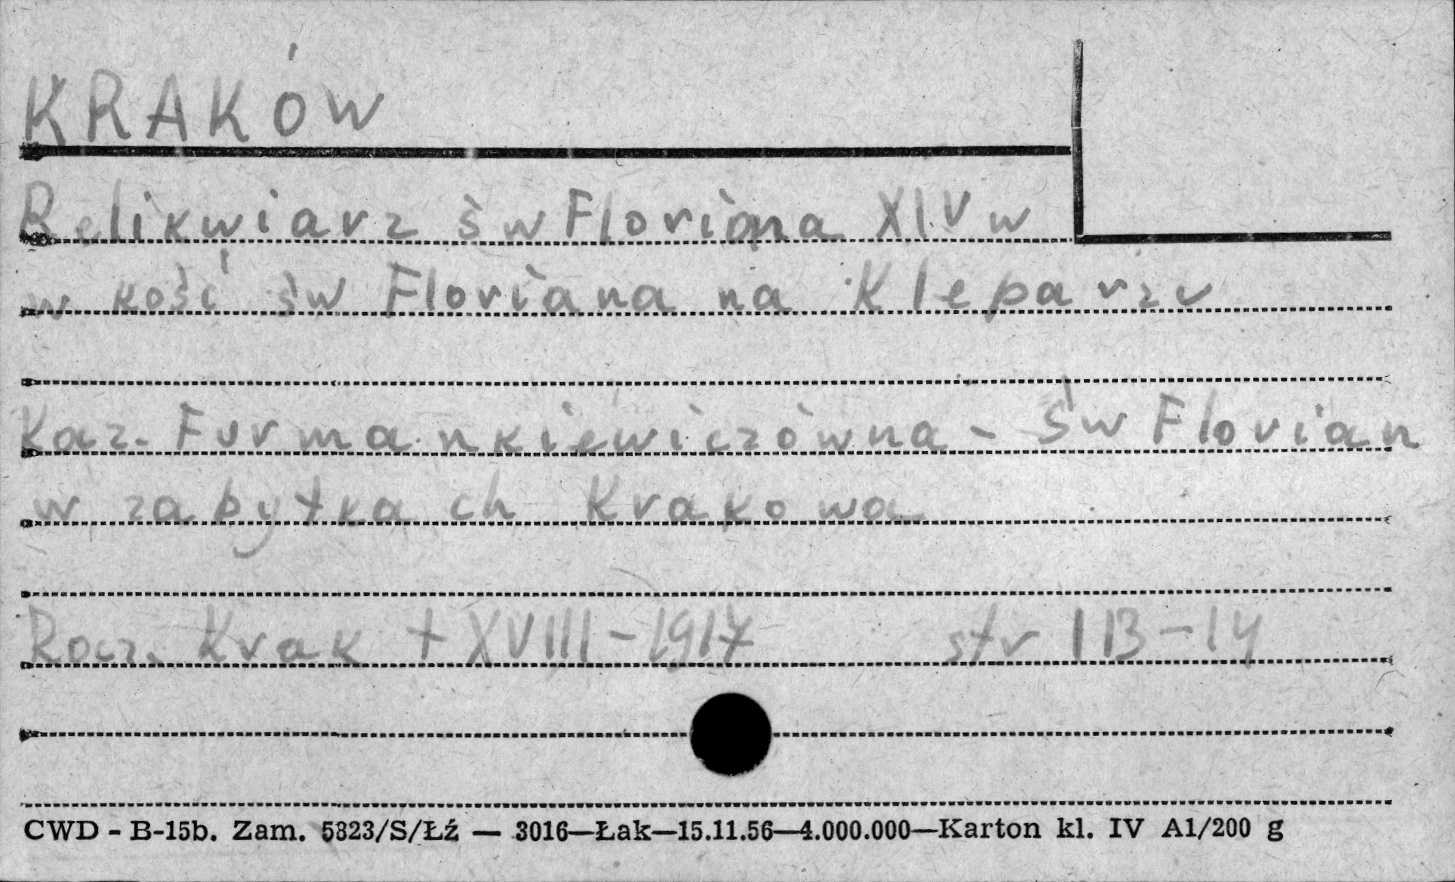 KRAKÓW
Relikwiarz św Floriana XIV w
w kość św Floriana na Kleparzu
Kaz. Furmankiewiczówna - Św Florian
w zabytkach Krakowa
Rocz. Krak t XVIII - 1917 str 113-14
CWD - B-15b. Zam. 5823/S/Łź — 3016—Łak—15.11.56—4.000.000—Karton kl. IV A1/200 g